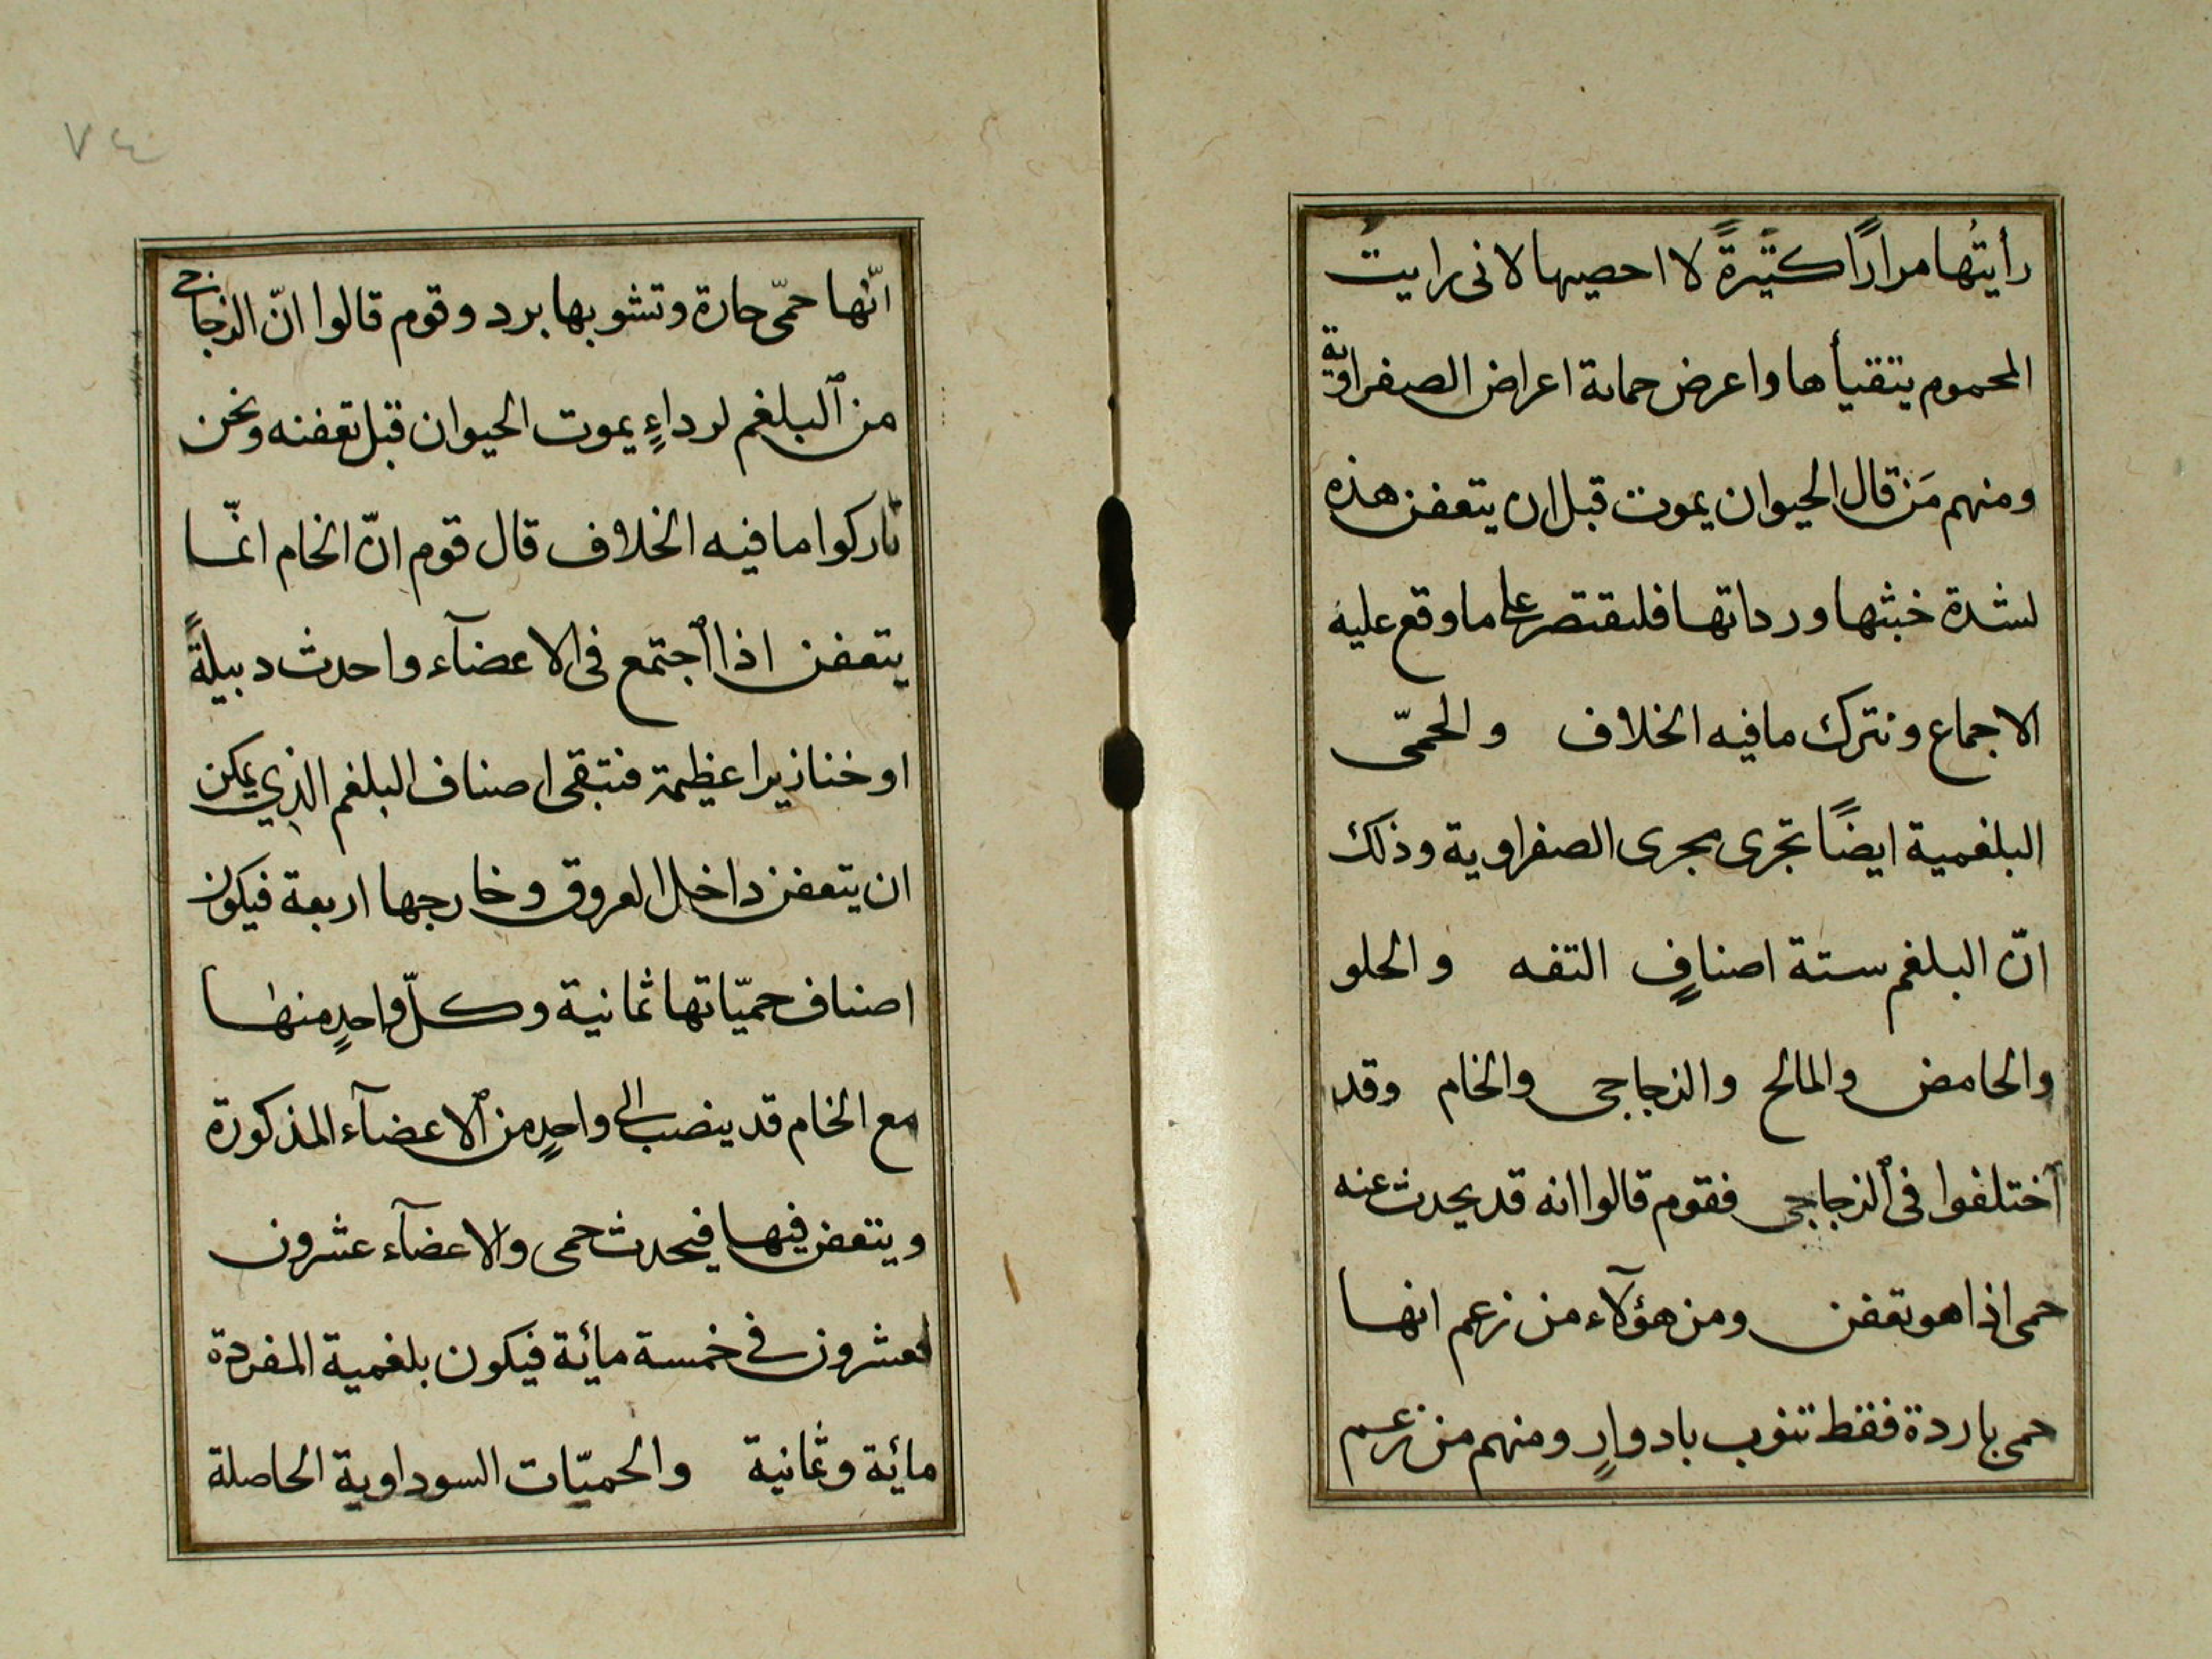 رأيتُها مرارًا كثيرةً لا احصيها لانى رايت
المحموم يتقيأها واعرض حماته اعراض الصفراوية
ومنهم مَن قال الحيوان يموت قبل ان يتعفن هذه
لشدة خبثها ورداتها فلنقتصر على ما وقع عليه
الاجماع ونترك ما فيه الخلاف والحمّى
البلغمية ايضًا تجرى مجرى الصفراوية وذلك
انّ البلغم ستة اصنافٍ التفه والحلو
والحامض والمالح والزجاجى والخام وقد
ٱختلفوا فى ٱلزجاجى فقوم قالوا انه قد يحدث عنه
حمى اذا هو تعفن ومن هؤلآء من زعم انها
حمى باردة فقط تنوب بادوارٍ ومنهم من زعم
٧٤
انّها حمّى حارة وتشوبها برد وقوم قالوا انّ الزجاجى
من ٱلبلغم لرداءٍ يموت الحيوان قبل تعفنه ونحن
تاركوا ما فيه الخلاف قال قوم انّ الخام انّما
يتعفن اذا ٱجتمع فى الاعضآء واحدث دبيلةً
او خنازيرا عظيمة فتبقى اصناف البلغم الذي يمكن
ان يتعفن داخل العروق وخارجها اربعة فيكون
اصناف حميّاتها ثمانية وكلّ واحدٍ منها
مع الخام قد ينصب الى واحدٍ من ٱلاعضآء المذكورة
ويتعفن فيها فيحدث حمى والاعضآء عشرون
فعشرون فى خمسة مائة فيكون بلغمية المفردة
مائة وثمانية والحميّات السوداوية الحاصلة